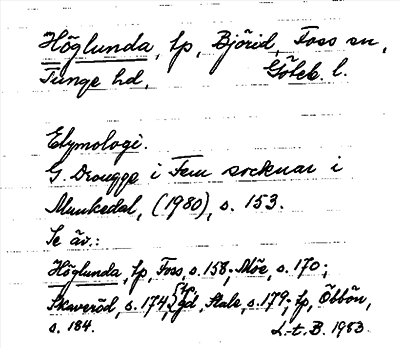 Höglunda, tp, Björid, Foss sn,
Tunge hd, Göteb. l.
Etymologi.
G. Drougge i Fem socknar i
Munkedal, (1980), s. 153.
Se äv.:
Höglunda, tp, Foss, s. 158; Möe, s. 170;
Skaveröd, s. 174, lgd, Stale, s. 179; tp, Öbbön,
s. 184. L-t. B. 1983.